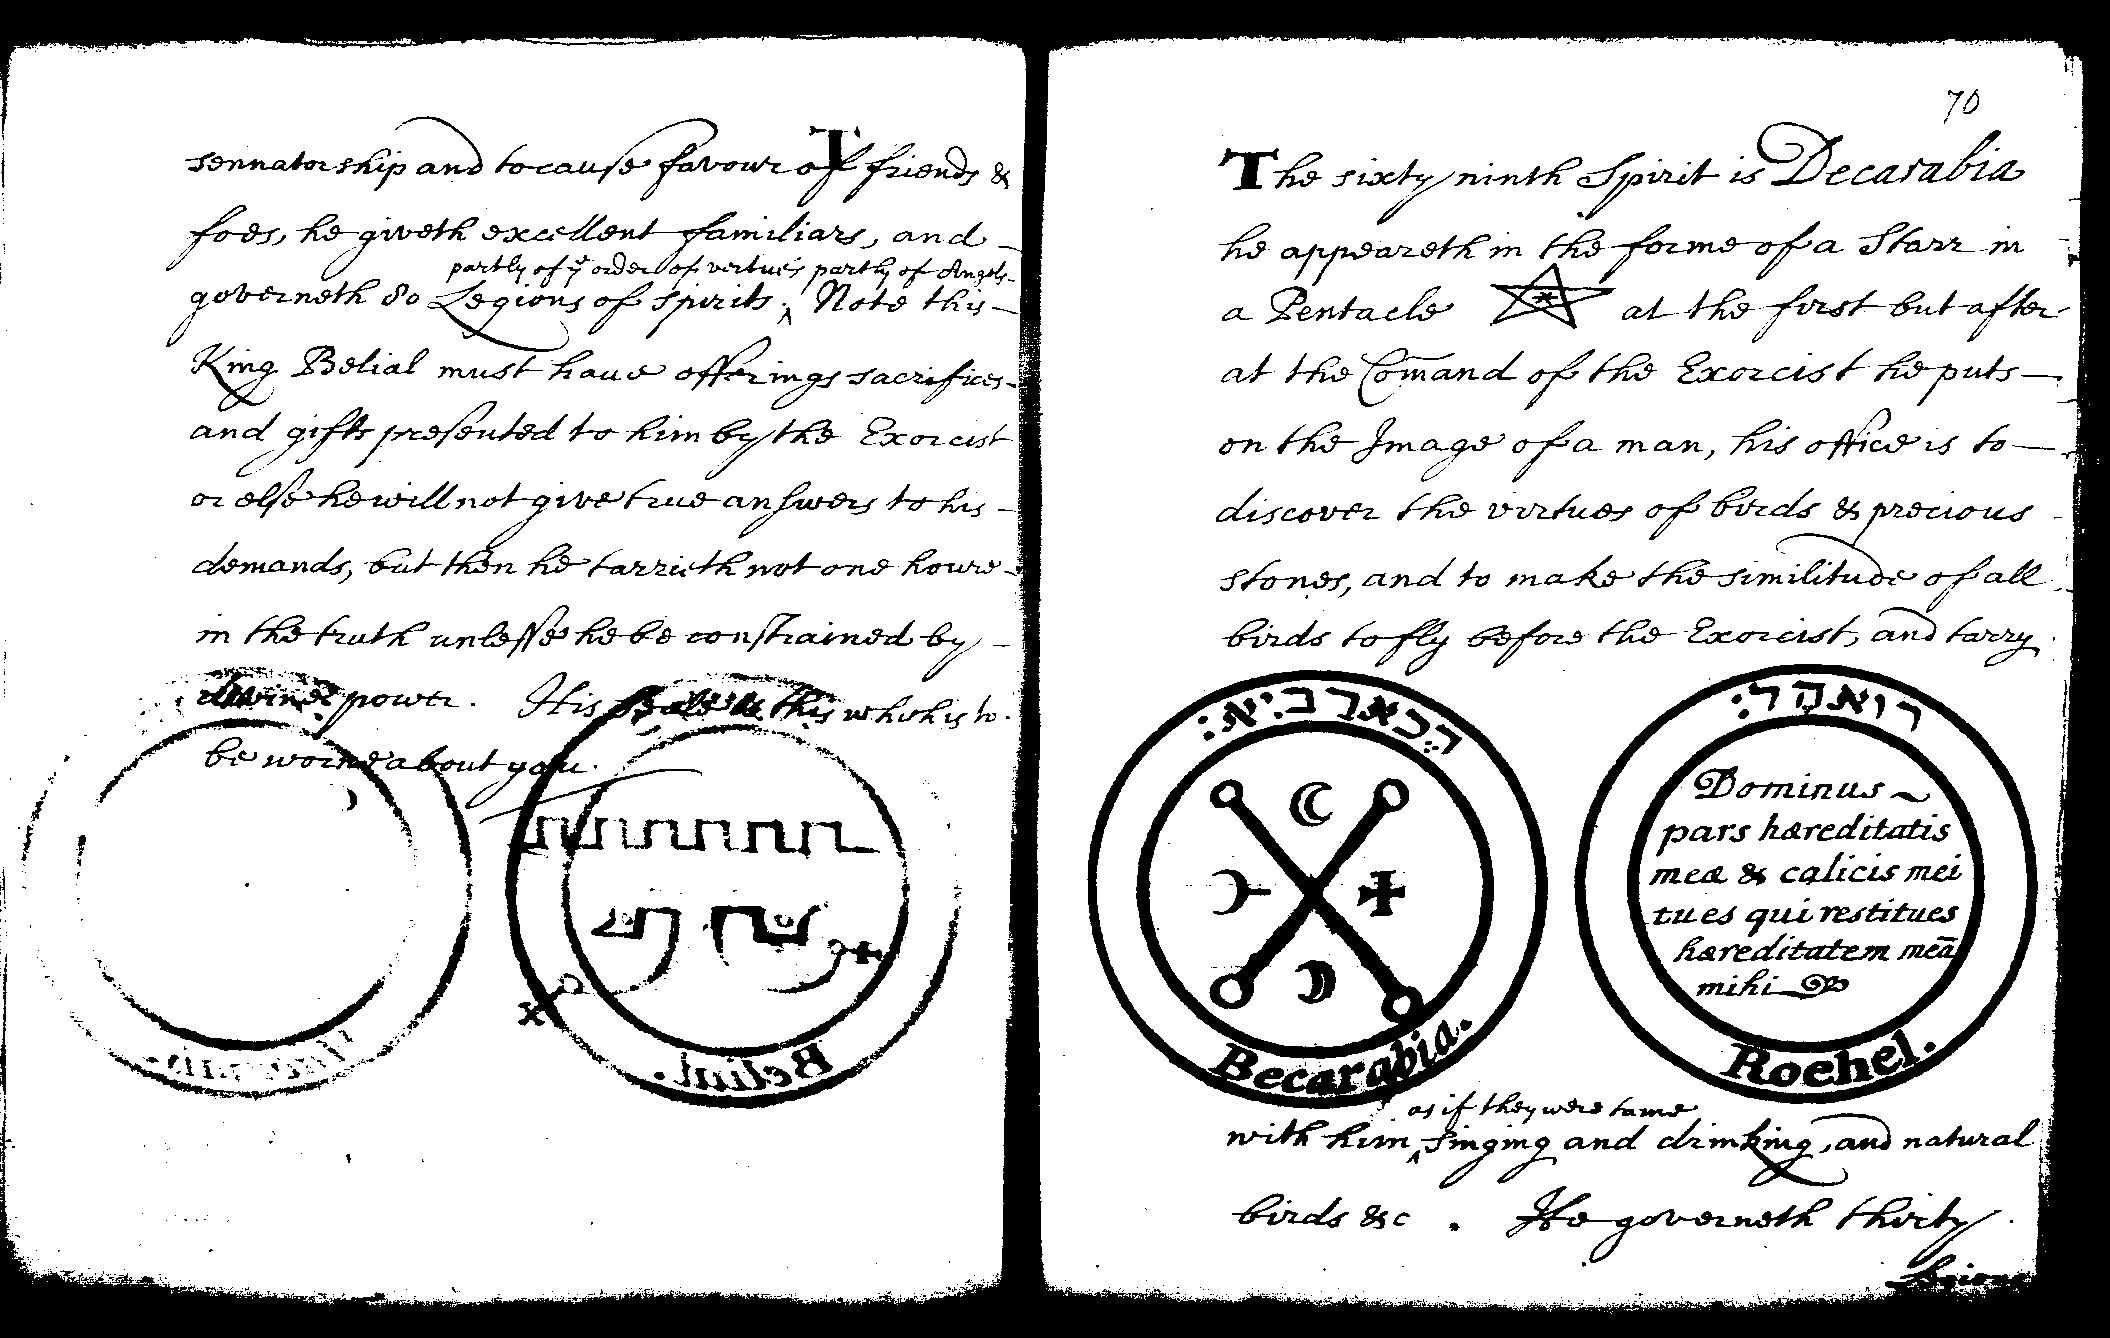 sennatorship and to cause favour of friends &
foes, he giveth excellent familiars, and
partly of yͤ order of vertues partly of Angels
governeth 80 Legions of spirits. ‸ Note this
King Belial must have offerings sacrifices
and gifts presented to him by the Exorcist
or else he will not give true answers to his
demands, but then he tarrieth not one houre
in the truth unlesse he be constrained by
divine power. His this which is to
be worne about you.
Belial.
70
The sixty ninth Spirit is Decarabia
he appeareth in the forme of a Starr in
a Pentacle at the first but after
at the Com̄and of the Exorcist he puts
on the Image of a man, his office is to
discover the virtues of birds & precious
stones, and to make the similitude of all
birds to fly before the Exorcist, and tarry
דכארביא:
Becarabia.
רואהל:
Dominus
pars hæreditatis
meæ & calicis mei
tu es qui restitues
hæreditatem meā
mihi
Roehel.
as if they were tame
with him ‸ singing and drinking, and natural
birds &c. He governeth thirty